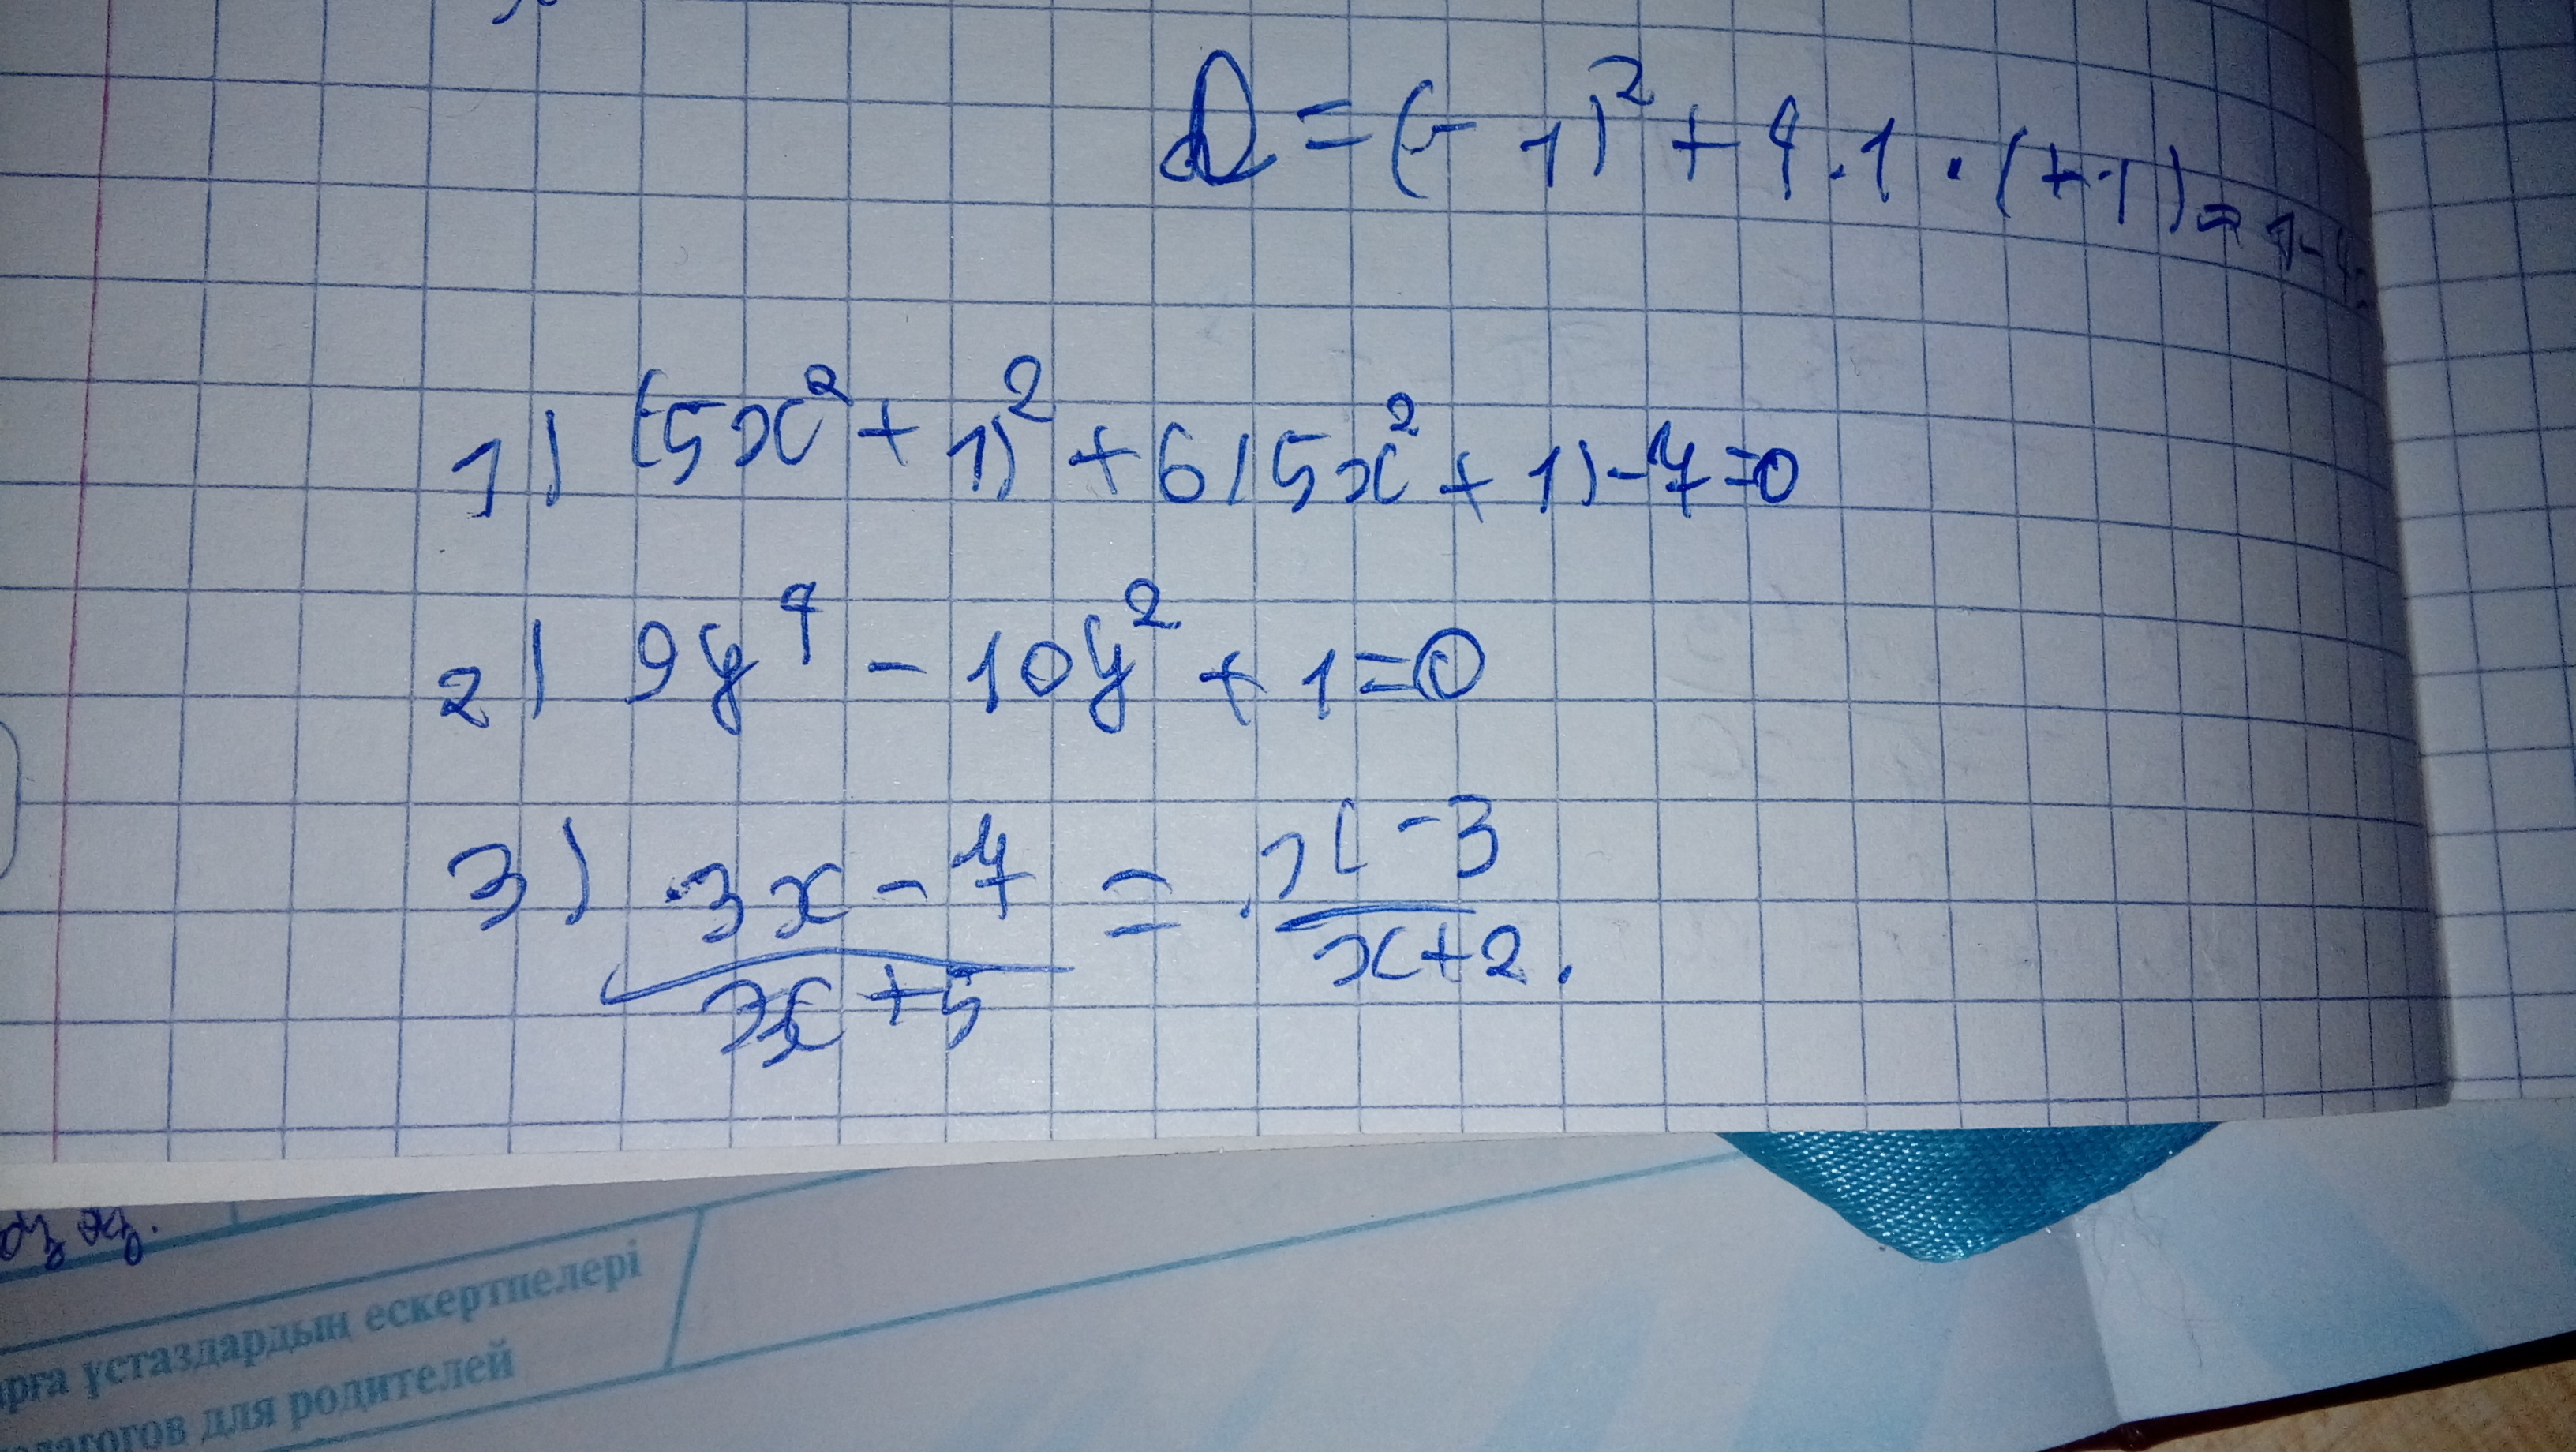 D = (- 1)² + 4 · 1 · (+1) = 1 - 4 =
1) (5x² + 1)² + 6(5x² + 1) - 7 = 0
2) 9y⁴ - 10y² + 1 = 0
3) (3x - 7)/(x + 5) = (x - 3)/(x + 2).
ұстаздардың ескертпелері
для родителей